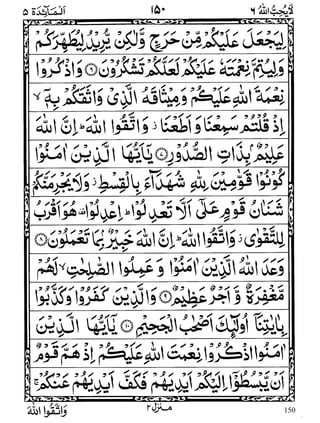 لَا يُحِبُّ اللهُ ٦ ١٥٠ اَلْمَآئِدَة ٥
لِيَجْعَلَ عَلَيْكُمْ مِّنْ حَرَجٍ وَّلٰكِنْ يُّرِيْدُ لِيُطَهِّرَكُمْ
وَلِيُتِمَّ نِعْمَتَهٗ عَلَيْكُمْ لَعَلَّكُمْ تَشْكُرُوْنَ ﴿٦﴾ وَاذْكُرُوْا
نِعْمَةَ اللهِ عَلَيْكُمْ وَمِيْثَاقَهُ الَّذِيْ وَاثَقَكُمْ بِهٖۤ ۙ
اِذْ قُلْتُمْ سَمِعْنَا وَاَطَعْنَا ۫ وَاتَّقُوا اللهَ ؕ اِنَّ اللهَ
عَلِيْمٌۢ بِذَاتِ الصُّدُوْرِ ﴿٧﴾ يٰۤاَيُّهَا الَّذِيْنَ اٰمَنُوْا
كُوْنُوْا قَوّٰمِيْنَ لِلّٰهِ شُهَدَآءَ بِالْقِسْطِ ۫ وَلَا يَجْرِمَنَّكُمْ
شَنَاٰنُ قَوْمٍ عَلٰۤى اَلَّا تَعْدِلُوْا ؕ اِعْدِلُوْا ۫ هُوَ اَقْرَبُ
لِلتَّقْوٰى ۫ وَاتَّقُوا اللهَ ؕ اِنَّ اللهَ خَبِيْرٌۢ بِمَا تَعْمَلُوْنَ ﴿٨﴾
وَعَدَ اللهُ الَّذِيْنَ اٰمَنُوْا وَعَمِلُوا الصّٰلِحٰتِ ۙ لَهُمْ
مَّغْفِرَةٌ وَّاَجْرٌ عَظِيْمٌ ﴿٩﴾ وَالَّذِيْنَ كَفَرُوْا وَكَذَّبُوْا
بِاٰيٰتِنَاۤ اُولٰٓئِكَ اَصْحٰبُ الْجَحِيْمِ ﴿١٠﴾ يٰۤاَيُّهَا الَّذِيْنَ
اٰمَنُوا اذْكُرُوْا نِعْمَتَ اللهِ عَلَيْكُمْ اِذْ هَمَّ قَوْمٌ
اَنْ يَّبْسُطُوْۤا اِلَيْكُمْ اَيْدِيَهُمْ فَكَفَّ اَيْدِيَهُمْ عَنْكُمْ ۚ
وَاتَّقُوا اللهَ منزل ٢ 150